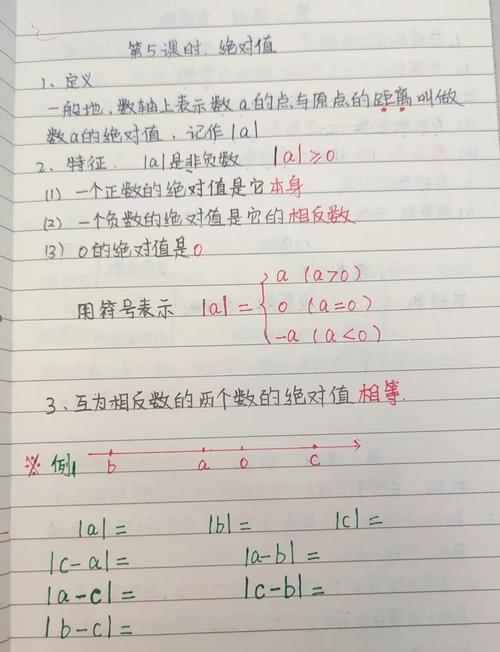 第5课时. 绝对值
1、定义
一般地,数轴上表示数a的点与原点的距离叫做
数a的绝对值,记作|a|
2、特征. |a|是非负数 |a|≥0
(1) 一个正数的绝对值是它本身
(2) 一个负数的绝对值是它的相反数
(3) 0的绝对值是0
用符号表示 |a|=
a (a>0)
0 (a=0)
-a (a<0)
3、互为相反数的两个数的绝对值相等.
※ 例1 b a 0 c
|a|= |b|= |c|=
|c-a|= |a-b|=
|a-c|= |c-b|=
|b-c|=